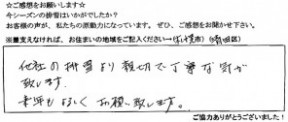 ☆ご感想をお願いします☆
今シーズンの排雪はいかがでしたか?
お客様の声が、私たちの原動力になっています。ぜひ、ご感想をお聞かせ下さい。
※差支えなければ、お住まいの地域をご記入ください→(市)(区)
他社の排雪より親切で丁寧な気が
致します。
来年もよろしくお願い致します。
ご協力ありがとうございました!